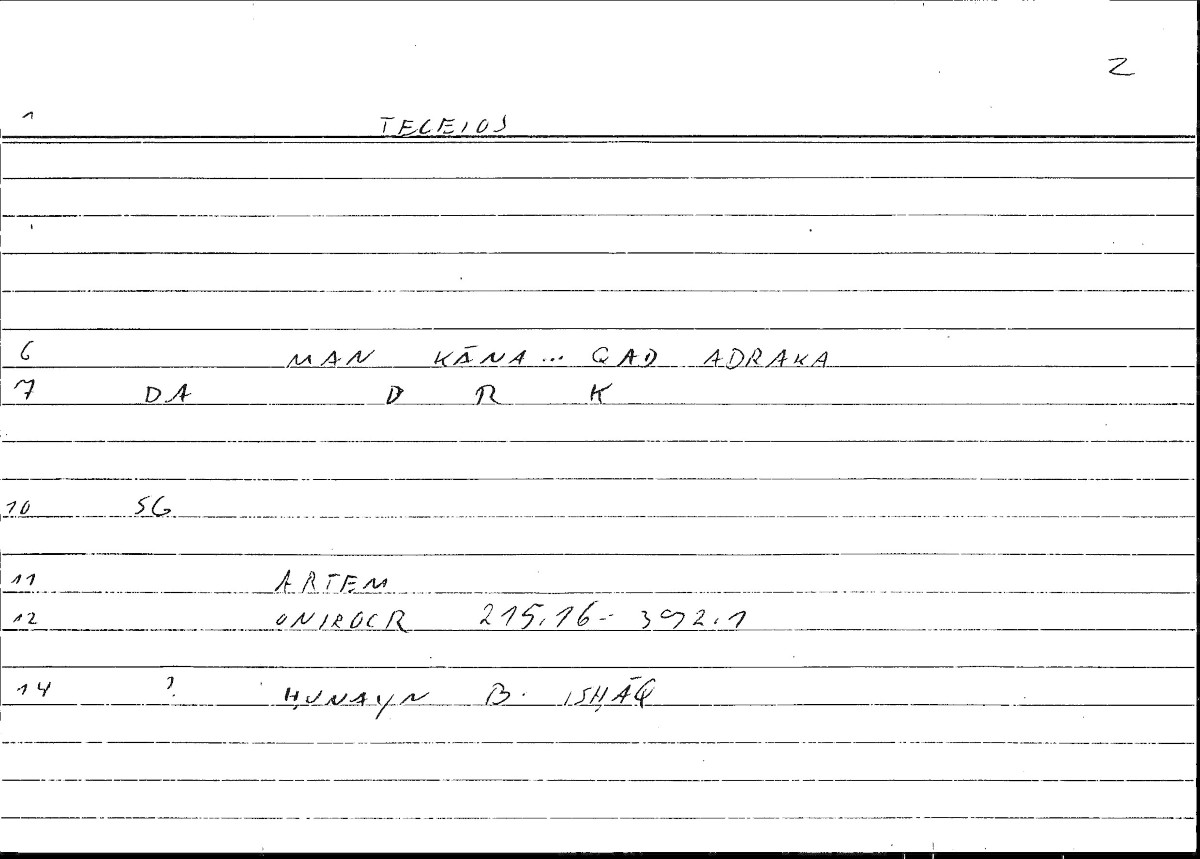 2
1 TELEIOS
6 MAN KĀNA... QAD ADRAKA
7 DA D R K
10 SG
11 ARTEM
12 ONIROCR 215.16-392.1
14 ? ḤUNAYN B. ISḤĀQ